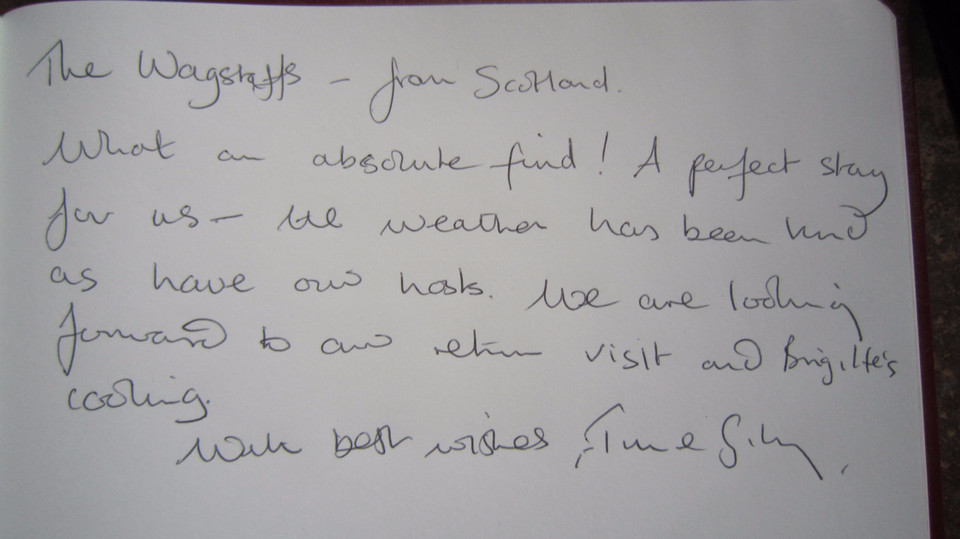 The Wagstaffs – from Scotland.
What an absolute find! A perfect stay
for us – the weather has been kind
as have our hosts. We are looking
forward to our return visit and Brigitte's
cooking.
With best wishes,